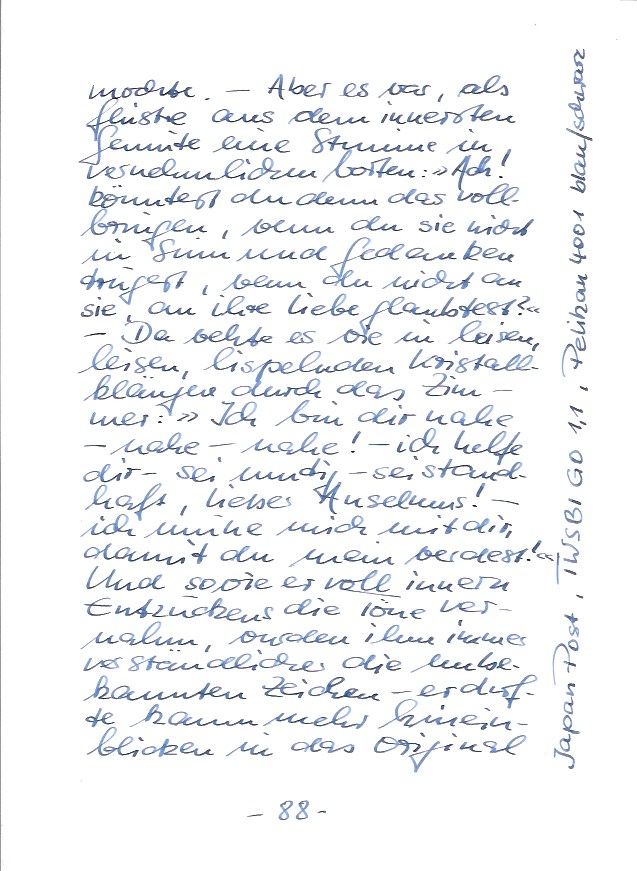 mochte. – Aber es war, als
flüstre aus dem innersten
Gemüte eine Stimme in
vernehmlichen Worten: »Ach!
könntest du denn das voll-
bringen, wenn du sie nicht
in Sinn und Gedanken
trügest, wenn du nicht an
sie, an ihre Liebe glaubtest?«
– Da wehte es wie in leisen,
leisen, lispelnden Kristall-
klängen durch das Zim-
mer: »Ich bin dir nahe
– nahe – nahe! – ich helfe
dir – sei mutig – sei stand-
haft, lieber Anselmus! –
ich mühe mich mit dir,
damit du mein werdest!«
Und sowie er voll innern
Entzückens die Töne ver-
nahm, wurden ihm immer
verständlicher die unbe-
kannten Zeichen – er durf-
te kaum mehr hinein-
blicken in das Original
- 88 -
Japan Post, TWSBI GO 1,1, Pelikan 4001 blau/schwarz